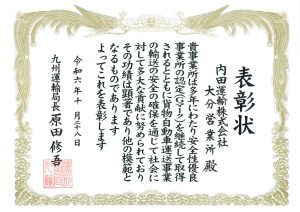 表彰状
内田運輸株式会社
大分営業所 殿
貴事業所は多年にわたり安全性優良
事業所の認定(Gマーク)を継続して取得
されるとともに貨物自動車運送事業
の輸送の安全の確保を通じて社会に
対して多大な貢献に努められており
その功績は顕著であり他の模範と
なるものであります
よってこれを表彰します
令和六年十月二十八日
九州運輸局長 原田修吾